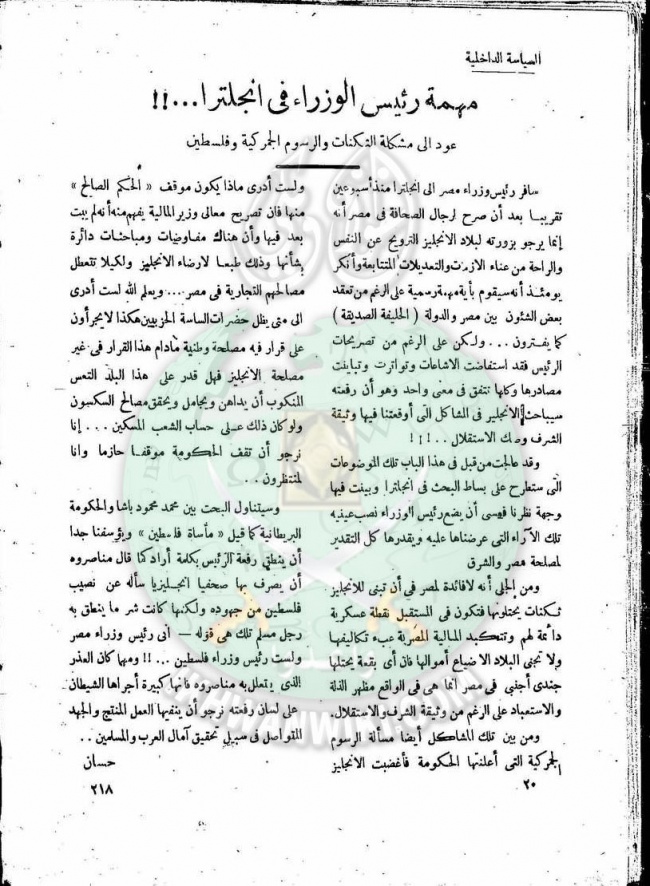 السياسة الداخلية
مهمة رئيس الوزراء فى انجلترا...!!
عود الى مشكلة الثكنات والرسوم الجمركية وفلسطين
سافر رئيس وزراء مصر الى انجلترا منذ أسبوعين
تقريبا بعد أن صرح لرجال الصحافة فى مصر أنه
إنما يرجو بزورته لبلاد الانجليز الترويح عن النفس
والراحة من عناء الازمات والتعديلات المتتابعة وأنكر
يومئذ أنه سيقوم بأية مهمة رسمية على الرغم من تعقد
بعض الشئون بين مصر والدولة ( الحليفة الصديقة )
كما يفترون ... ولكن على الرغم من تصريحات
الرئيس فقد استفاضت الاشاعات وتواترت وتباينت
مصادرها وكلها تتفق فى معنى واحد وهو أن رفعته
سيباحث الانجليز فى المشاكل التى أوقعتنا فيها وثيقة
الشرف وصك الاستقلال ..!!!
وقد عالجت من قبل فى هذا الباب تلك الموضوعات
التى ستطرح على بساط البحث فى انجلترا وبينت فيها
وجهة نظرنا فعسى أن يضع رئيس الوزراء نصب عينيه
تلك الآراء التى عرضناها عليه ويقدرها كل التقدير
لمصلحة مصر والشرق
ومن الجلى أنه لا فائدة لمصر فى أن تبنى للانجليز
ثكنات يحتلونها فتكون فى المستقبل نقطة عسكرية
دائمة لهم وتتكبد المالية المصرية عبء تكاليفها
ولا تجنى البلاد الا ضياع أموالها فان أى بقعة يحتلها
جندى أجنبى فى مصر انما هى فى الواقع مظهر الذلة
والاستعباد على الرغم من وثيقة الشرف والاستقلال.
ومن بين تلك المشاكل أيضا مسألة الرسوم
الجمركية التى أعلنتها الحكومة فأغضبت الانجليز
ولست أدرى ماذا يكون موقف « الحكم الصالح »
منها فان تصريح معالى وزير المالية يفهم منه أنه لم يبت
بعد فيها وأن هناك مفاوضات ومباحثات دائرة
بشأنها وذلك طبعا لارضاء الانجليز ولكيلا تتعطل
مصالحهم التجارية فى مصر ... ويعلم الله لست أدرى
الى متى يظل حضرات الساسة الحزبيين هكذا لا يجرأون
على قرار فيه مصلحة وطنية مادام هذا القرار فى غير
مصلحة الانجليز فهل قدر على هذا البلد التعس
المنكوب أن يداهن ويجامل ويحقق مصالح السكسون
ولو كان ذلك على حساب الشعب المسكين ... إنا
نرجو أن تقف الحكومة موقفا حازما وانا
لمنتظرون ..
وسيتناول البحث بين محمد محمود باشا والحكومة
البريطانية كما قيل « مأساة فلسطين » ويؤسفنا جدا
أن ينطق رفعة الرئيس بكلمة أراد كما قال مناصروه
أن يصرف بها صحفيا انجليزيا سأله عن نصيب
فلسطين من جهوده ولكنها كانت شر ما ينطق به
رجل مسلم تلك هى قوله — أنى رئيس وزراء مصر
ولست رئيس وزراء فلسطين ... !! ومهما كان العذر
الذى يتعلل به مناصروه فانها كبيرة أجراها الشيطان
على لسان رفعته نرجو أن ينفيها العمل المنتج والجهد
المتواصل فى سبيل تحقيق آمال العرب والمسلمين ..
حسان
٢٠
٢١٨